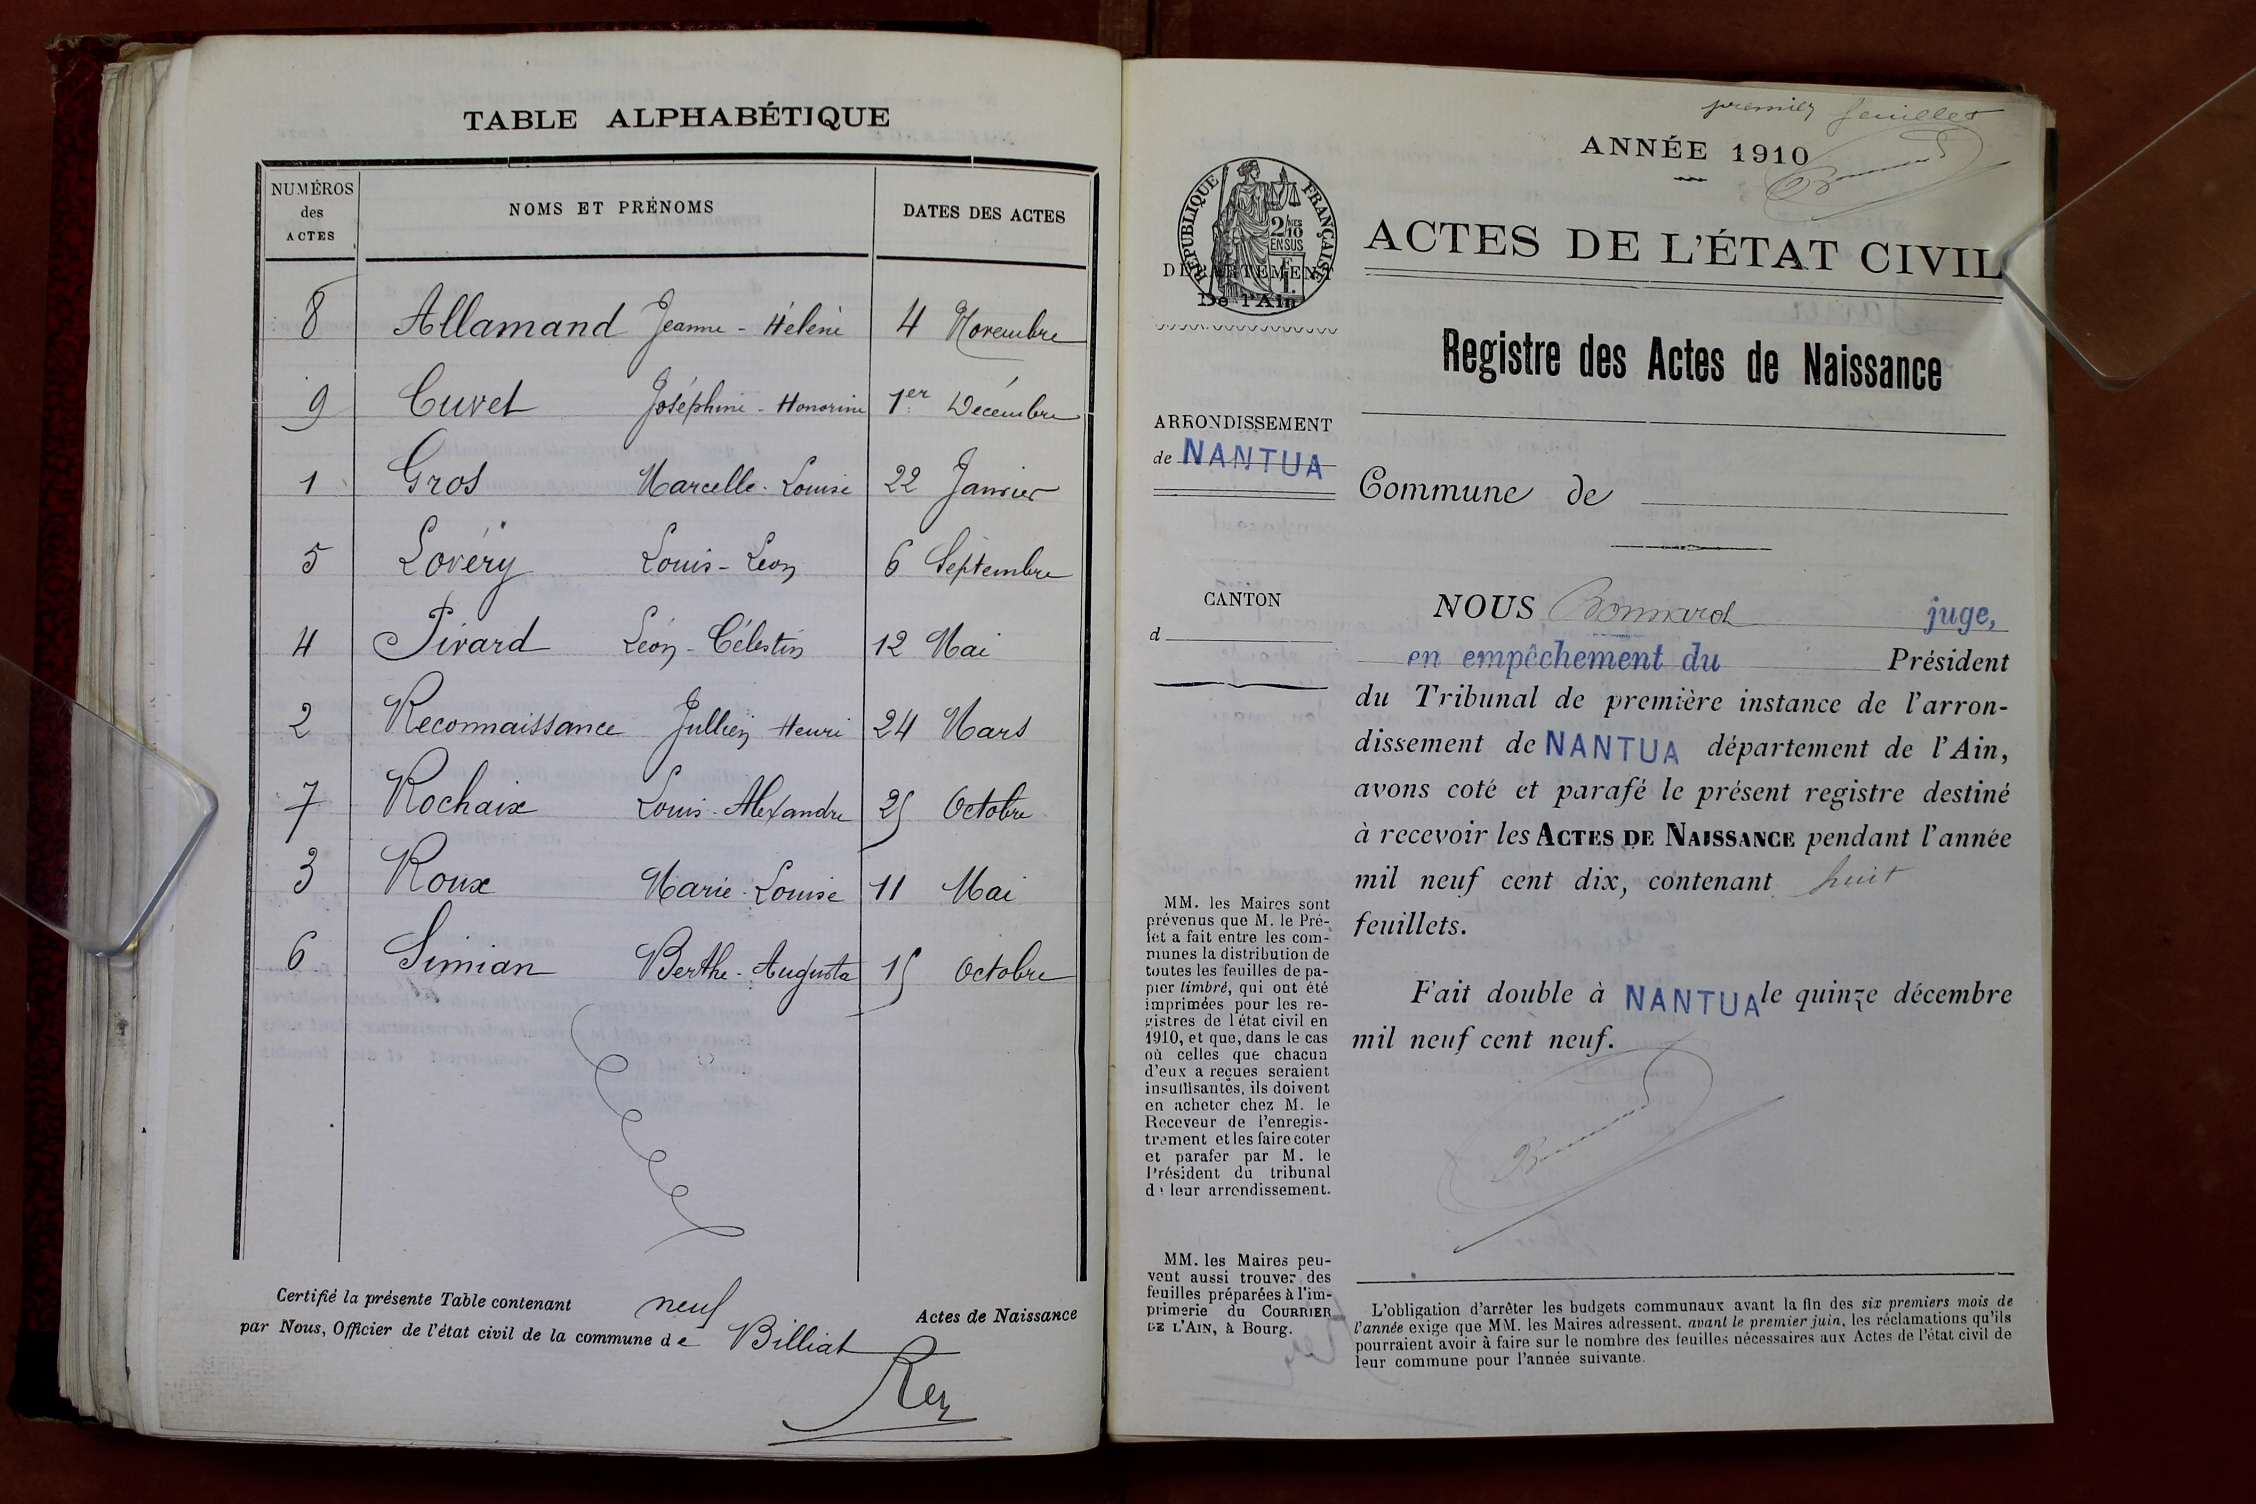 TABLE ALPHABÉTIQUE
NUMÉROS des ACTES NOMS ET PRÉNOMS DATES DES ACTES
8 Allamand Jeanne - Hélène 4 Novembre
9 Cuvet Joséphine - Honorine 1er Décembre
1 Gros Marcelle - Louise 22 Janvier
5 Lovéry Louis - Léon 6 Septembre
4 Pivard Léon - Célestin 12 Mai
2 Reconnaissance Jullien Henri 24 Mars
7 Rochaix Louis - Alexandre 25 Octobre
3 Roux Marie - Louise 11 Mai
6 Simian Berthe - Augusta 15 Octobre
Certifié la présente Table contenant neuf Actes de Naissance
par Nous, Officier de l'état civil de la commune de Billiat
Rey
premier feuillet
ANNÉE 1910
RÉPUBLIQUE FRANÇAISE
2/10 EN SUS
DÉPARTEMENT
De l'Ain
ACTES DE L'ÉTAT CIVIL
Registre des Actes de Naissance
ARRONDISSEMENT
de NANTUA
Commune de
CANTON
d
NOUS Bonnard juge,
en empêchement du Président
du Tribunal de première instance de l'arron-
dissement de NANTUA département de l'Ain,
avons coté et parafé le présent registre destiné
à recevoir les ACTES DE NAISSANCE pendant l'année
mil neuf cent dix, contenant huit
feuillets.
Fait double à NANTUA le quinze décembre
mil neuf cent neuf.
MM. les Maires sont
prévenus que M. le Pré-
fet a fait entre les com-
munes la distribution de
toutes les feuilles de pa-
pier timbré, qui ont été
imprimées pour les re-
gistres de l'état civil en
1910, et que, dans le cas
où celles que chacun
d'eux a reçues seraient
insuffisantes, ils doivent
en acheter chez M. le
Receveur de l'enregis-
trement et les faire coter
et parafer par M. le
Président du tribunal
de leur arrondissement.
MM. les Maires peu-
vent aussi trouver des
feuilles préparées à l'im-
primerie du COURRIER
DE L'AIN, à Bourg.
L'obligation d'arrêter les budgets communaux avant la fin des six premiers mois de
l'année exige que MM. les Maires adressent, avant le premier juin, les réclamations qu'ils
pourraient avoir à faire sur le nombre des feuilles nécessaires aux Actes de l'état civil de
leur commune pour l'année suivante.